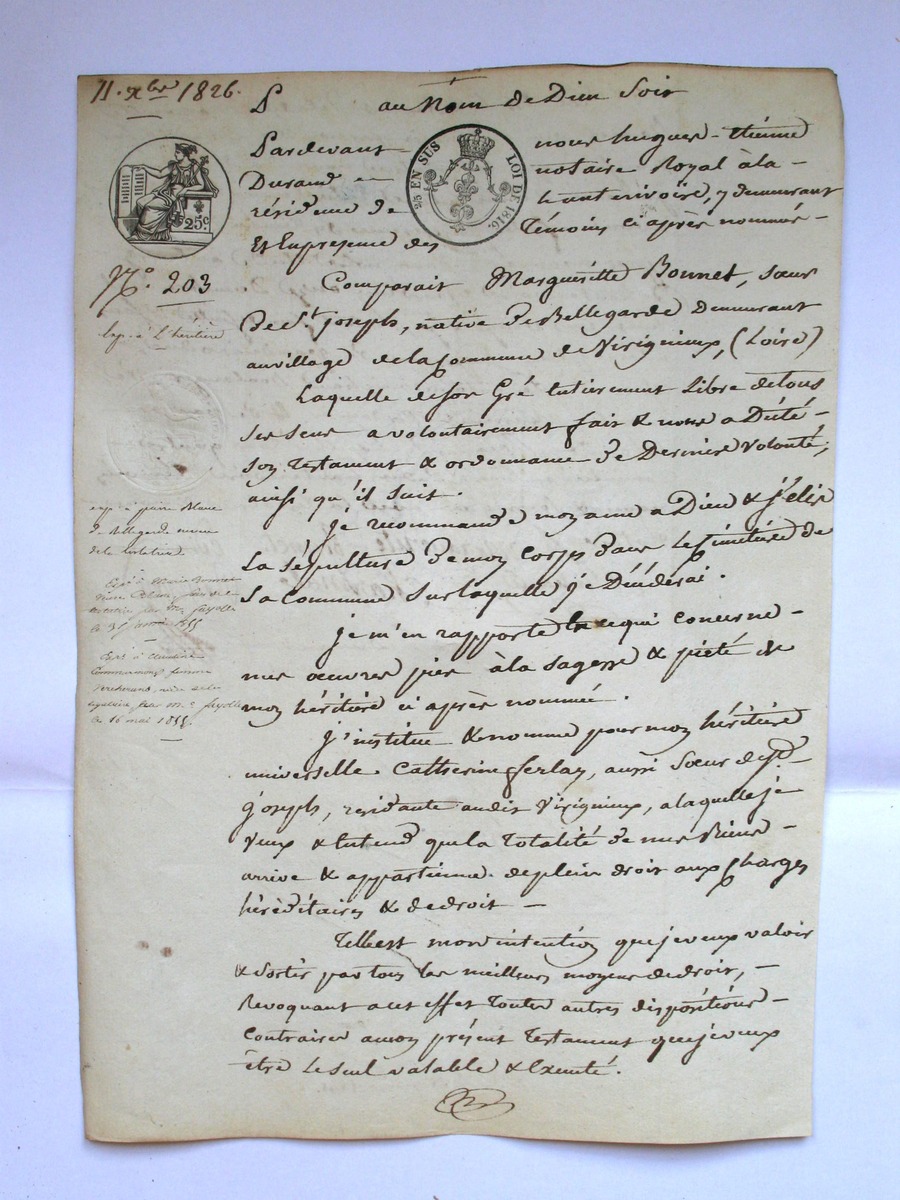 11. xbre 1826.
au Nom de Dieu soit
Pardevant nous hugues-Etienne
Durand notaire Royal à la
résidence de hauterivoire, y demeurant
Et Enpresence des Témoins ci après nommés
25c.
2/5 EN SUS LOI DE 1816.
No. 203
exp. à L'héritière
Comparait Marguéritte Bonnet, sœur
De St. joseph, native de Bellegarde demeurant
au village de la Commune de Virignieux, (Loire)
Laquelle de son Gré Entierement Libre de tous
ses sens a volontairement fait & nous a Dicté
son Testament & ordonnance de Derniere Volonté,
ainsi qu'il suit.
je recommande mon ame a Dieu & j'elis
La sépulture De mon Corps Dans Le Cimetière de
La Commune sur laquelle je Décéderai.
je m'en rapporte ce qui concerne
mes œuvres pies à la sagesse & piété de
mon héritière ci après nommée.
j'institue & nomme pour mon héritière
universelle Catherine ferlay, aussi sœur de St
joseph, résidante audit Virignieux, a laquelle je
Veux & Entend que la Totalité de mes Biens
arrive & appartienne de plein droit aux Charges
héréditaires & de droit
Telle est mon intention que je veux valoir
& sortir par tous les meilleurs moyens de droit,
Revoquant a cet effet Toutes autres dispositions
Contraires a mon présent Testament que je veux
être Le seul valable & Exécuté.
exp. à
de Bellegarde
de la testatrice
Expé à Marie Bonnet
par Me fayolle
1855
Expé à Claudine
femme
par Me fayolle
le 16 mai 1855.